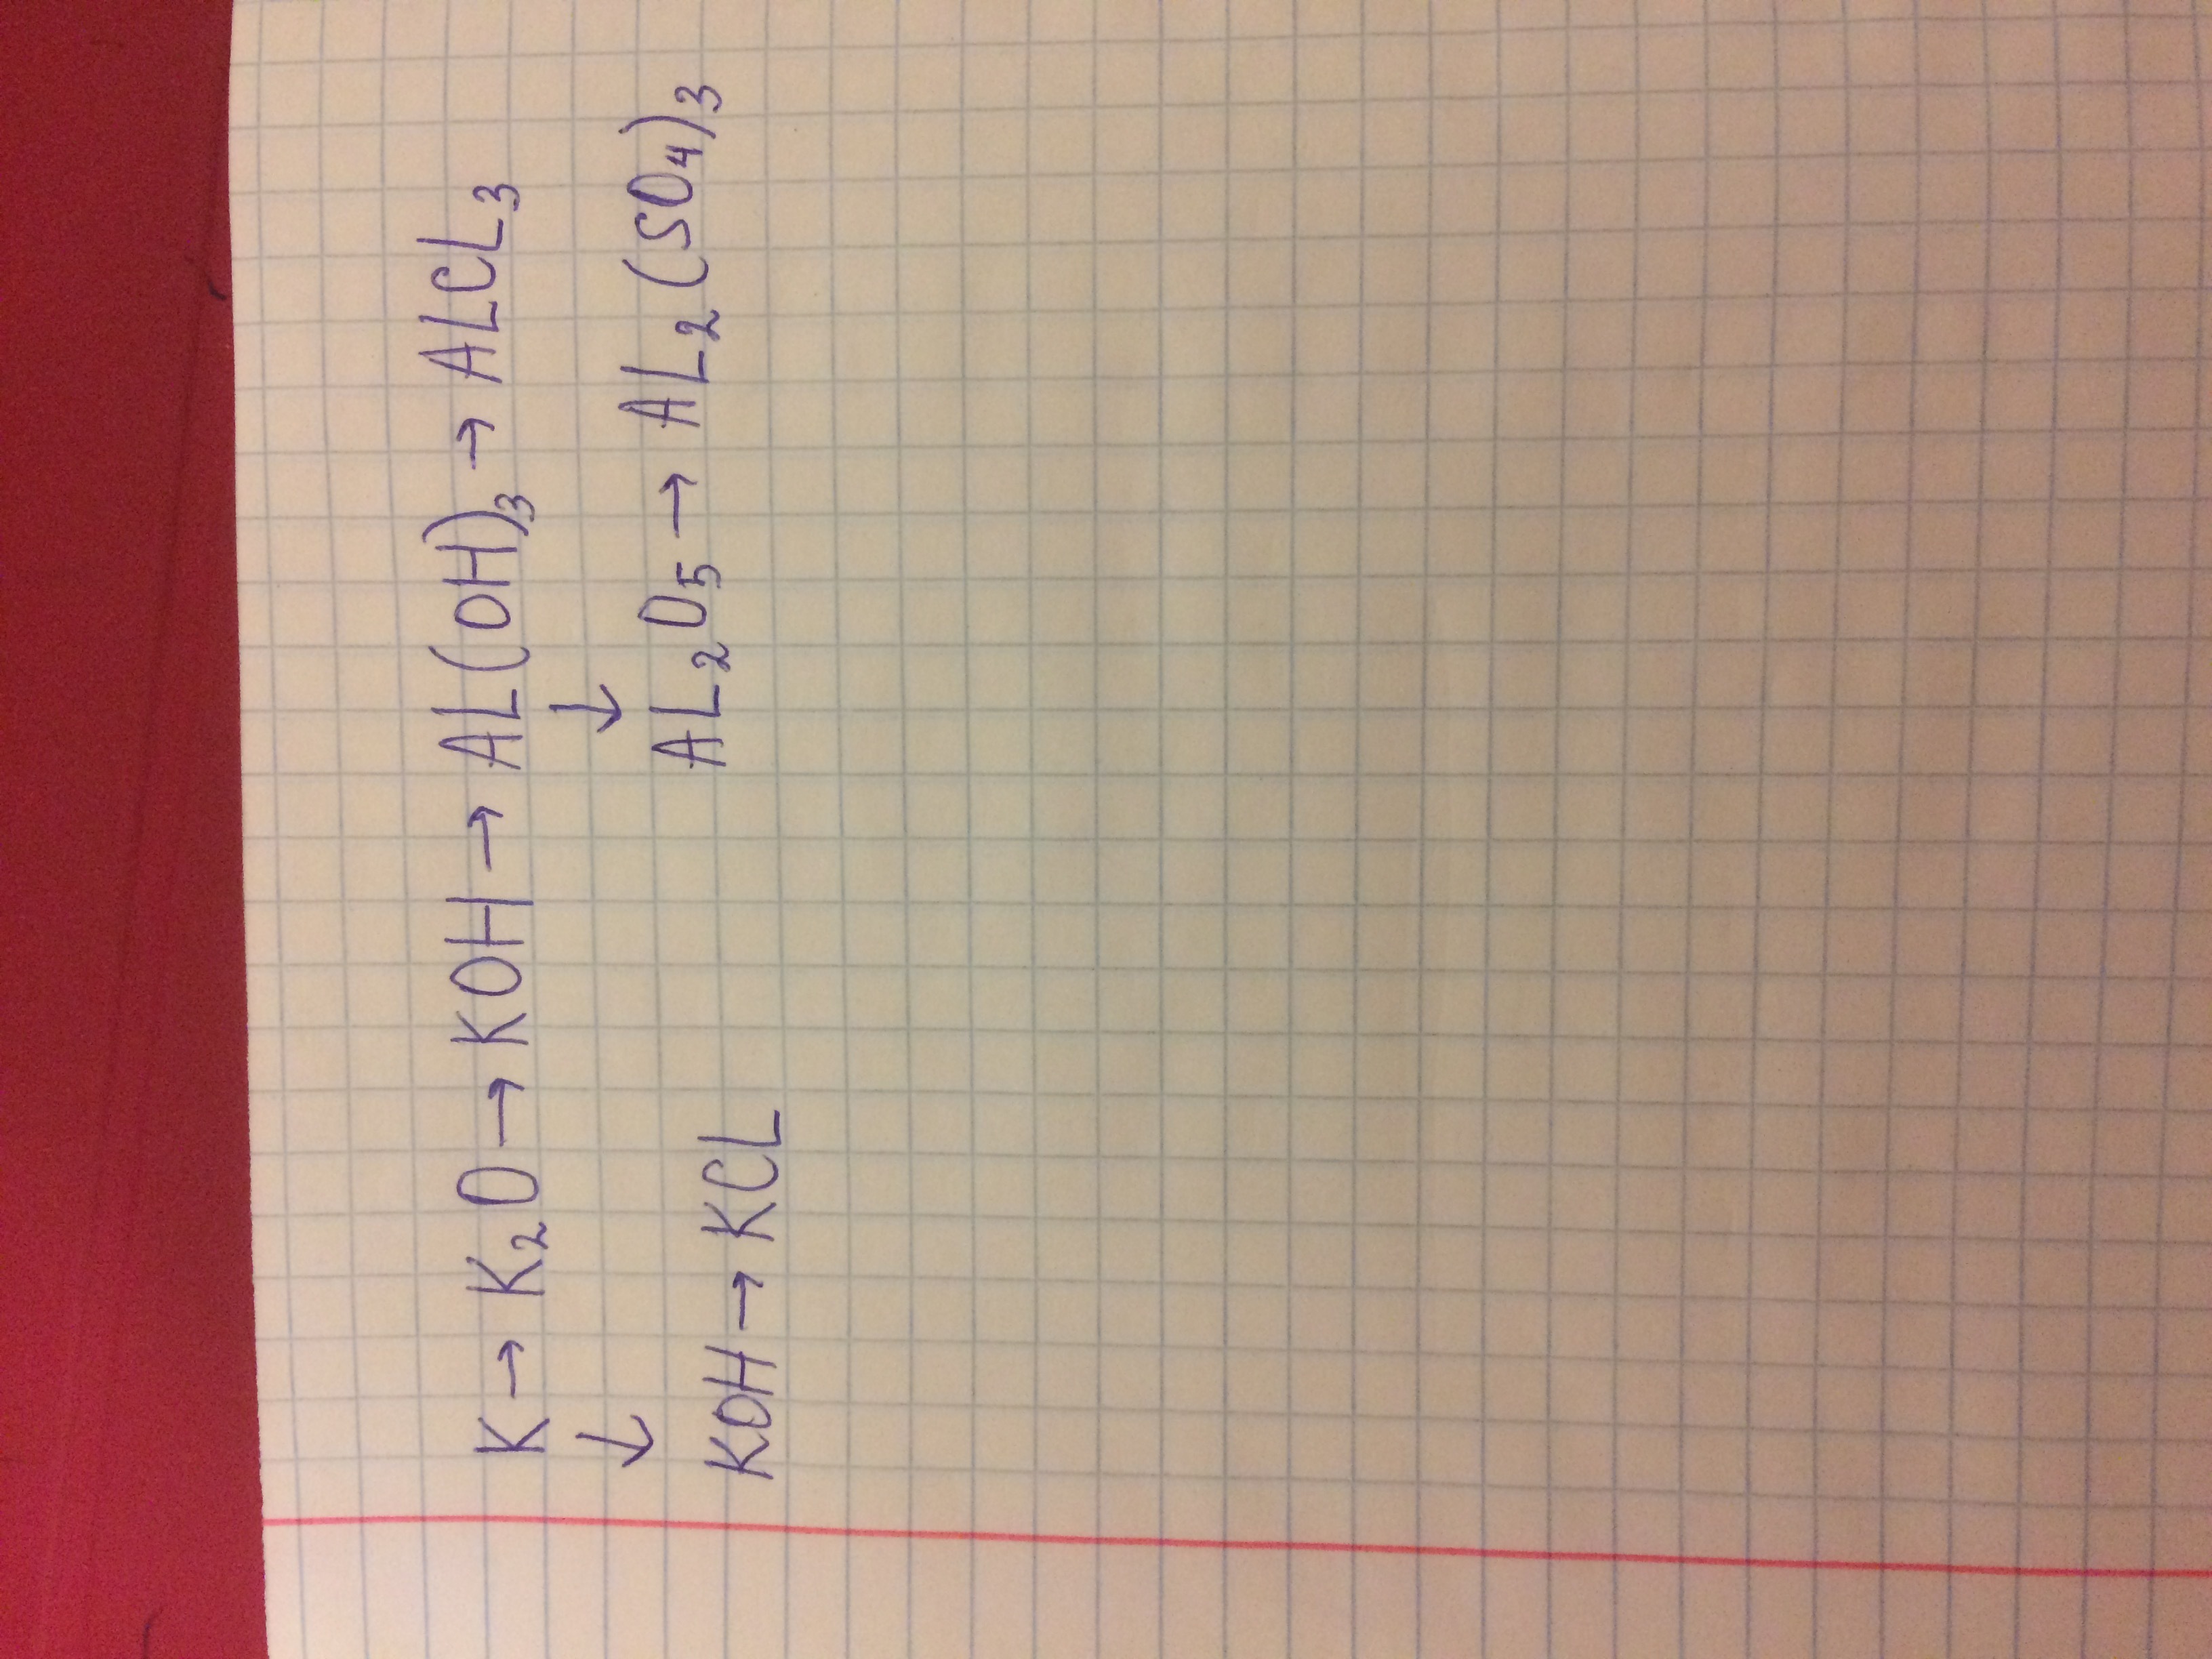 K → K₂O → KOH → AL(OH)₃ → ALCL₃
↓ ↓
KOH → KCL AL₂O₅ → AL₂(SO₄)₃